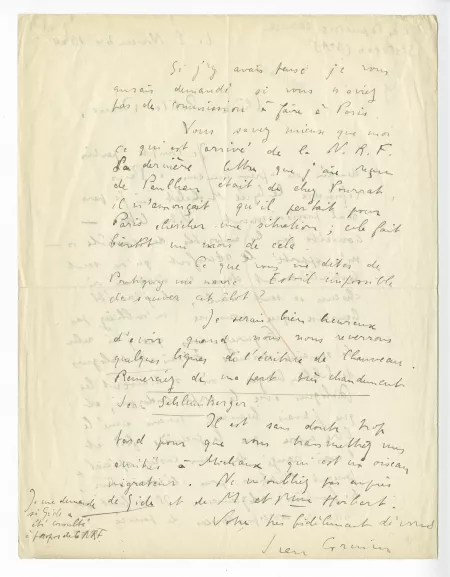 le 2 Novembre 1940
Si j'y avais pensé je vous
aurais demandé si vous n'aviez
pas de commission à faire à Paris.
Vous savez mieux que moi
ce qui est arrivé de la N. R. F.
La dernière lettre que j'ai reçue
de Paulhan était de chez Pourrat
il m'annonçait qu'il partait pour
Paris chercher une situation ; cela fait
bientôt un mois de cela
Ce que vous me dites de
Pontigny me navre. Est-il impossible
de sauver cet îlot ?
Je serais bien heureux
d'avoir quand nous nous reverrons
quelques lignes de l'écriture de Chauveau.
Remerciez de ma part très chaudement
Jean Schlumberger
Il est sans doute trop
tard pour que vous transmettiez mes
amitiés à Michaux qui est un oiseau
migrateur. Ne m'oubliez pas auprès
de Gide et de Mr et Mme Herbert.
Votre très fidèlement dévoué
Jean Grenier
Je me demande
si Gide a
été consulté
à propos de la NRF